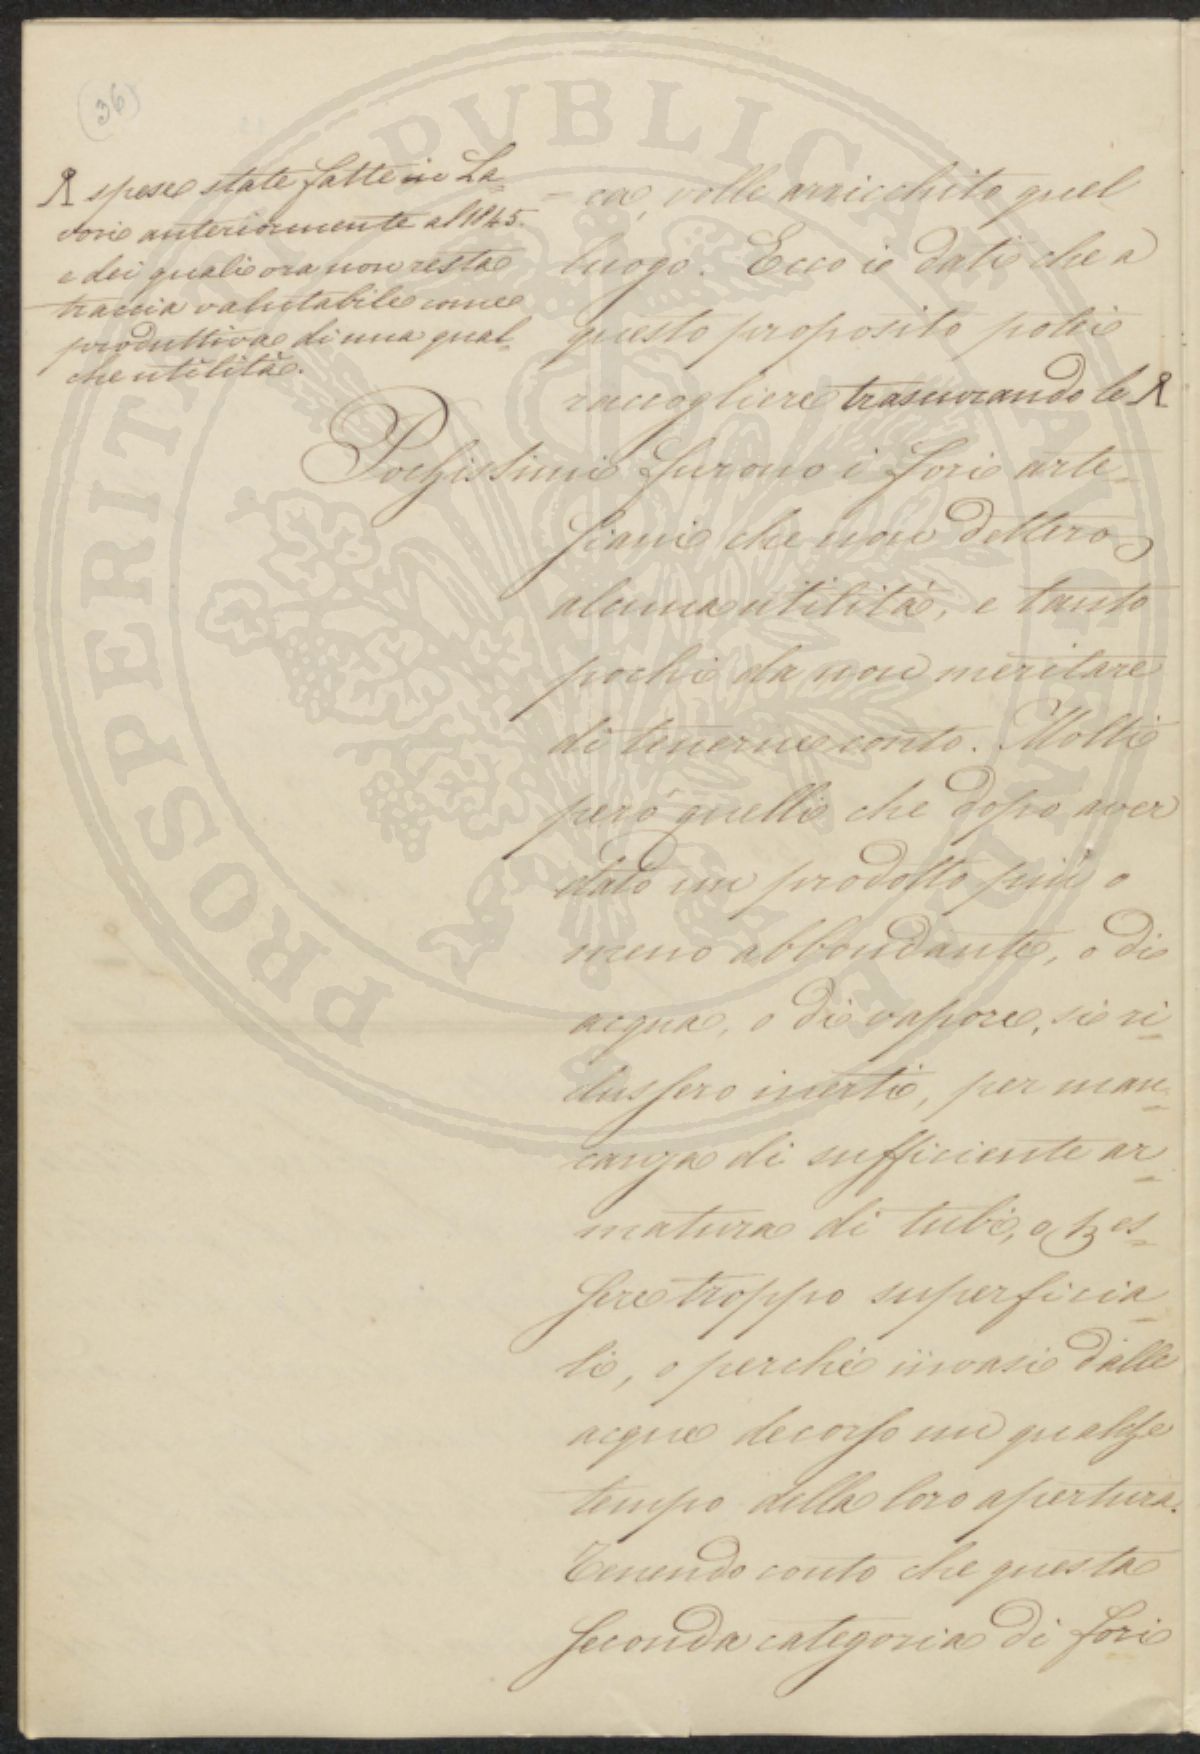 (36)
spese state fatte in La-
vori anteriormente al 1845.
e dei quali ora non resta
traccia valutabile come
produttiva di una qual-
che utilità.
- ca, volle arricchito quel
luogo. Ecco i dati che a
questo proposito potei
raccogliere trascurando le
Pochissimi furono i fori arte-
siani che non dettero
alcuna utilità, e tanto
pochi da non meritare
di tenerne conto. Molti
però quelli che dopo aver
dato un prodotto più o
meno abbondante, o di
acqua, o di vapore, si ri-
dussero inerti, per man-
canza di sufficiente ar-
matura di tubi, o es-
sere troppo superficia-
li, o perchè invasi dalle
acque decorso un qualche
tempo della loro apertura.
Tenendo conto che questa
seconda categoria di fori
PROSPERITÀ PUBLICA